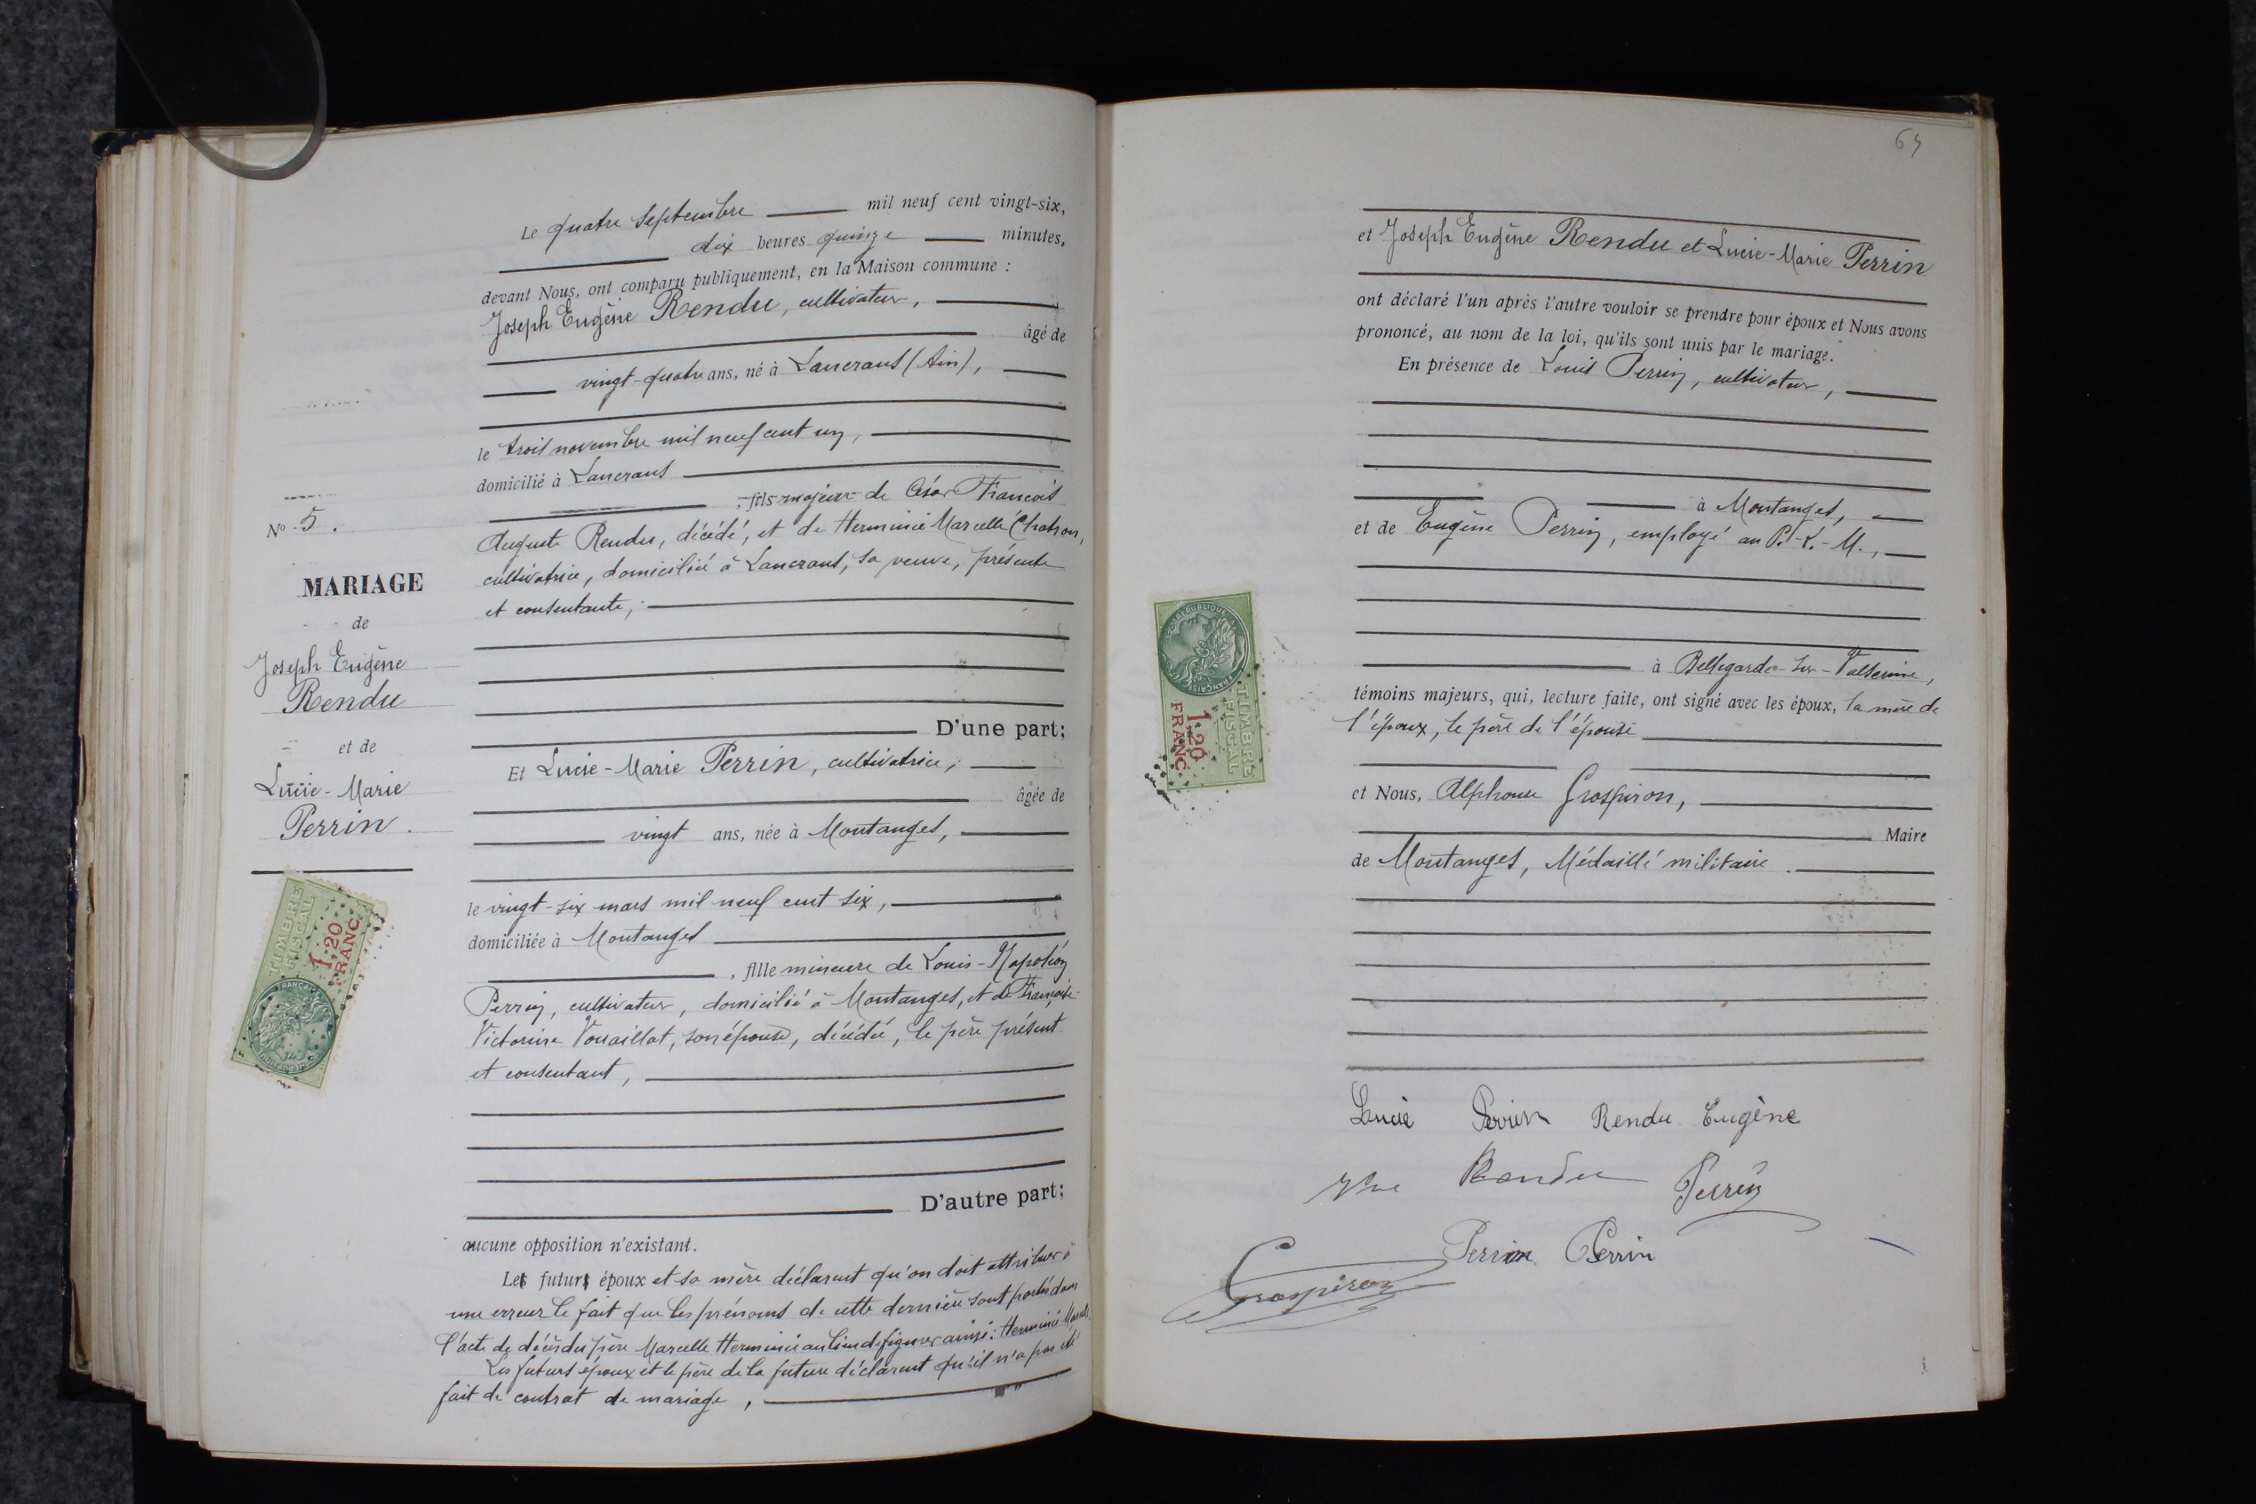 Le quatre Septembre mil neuf cent vingt-six,
dix heures quinze minutes,
devant Nous, ont comparu publiquement, en la Maison commune :
Joseph Eugène Rendu, cultivateur,
âgé de
vingt-quatre ans, né à Lancrans (Ain),
le trois novembre mil neuf cent un,
domicilié à Lancrans
, fils majeur de César François
Auguste Rendu, décédé, et de Herminie Marcelle Chatron,
cultivatrice, domiciliée à Lancrans, sa veuve, présente
et consentante,
D'une part;
Et Lucie-Marie Perrin, cultivatrice,
âgée de
vingt ans, née à Montanges,
le vingt-six mars mil neuf cent six,
domiciliée à Montanges
, fille mineure de Louis-Napoléon
Perrin, cultivateur, domicilié à Montanges, et de Françoise
Victorine Vouaillat, son épouse, décédée, le père présent
et consentant,
D'autre part;
aucune opposition n'existant.
Le futur époux et sa mère déclarent qu'on doit attribuer à
une erreur le fait que les prénoms de cette dernière sont portés dans
l'acte de décès du père Marcelle Herminie au lieu de figurer ainsi : Herminie Marcelle
Les futurs époux et le père de la future déclarent qu'il n'a pas été
fait de contrat de mariage,
No 5.
MARIAGE
de
Joseph Eugène
Rendu
et de
Lucie-Marie
Perrin.
TIMBRE
FISCAL
1.20
FRANC
69
et Joseph Eugène Rendu et Lucie-Marie Perrin
ont déclaré l'un après l'autre vouloir se prendre pour époux et Nous avons
prononcé, au nom de la loi, qu'ils sont unis par le mariage.
En présence de Louis Perrin, cultivateur,
à Montanges,
et de Eugène Perrin, employé au P.-L.-M.,
à Bellegarde-sur-Valserine,
témoins majeurs, qui, lecture faite, ont signé avec les époux, la mère de
l'époux, le père de l'épouse
et Nous, Alphonse Grospiron,
Maire
de Montanges, Médaillé militaire.
RÉPUBLIQUE
FRANÇAISE
TIMBRE
FISCAL
1.20
FRANC
Lucie Perrin Rendu Eugène
Vve Rendu Perrin
Perrin Perrin
Grospiron